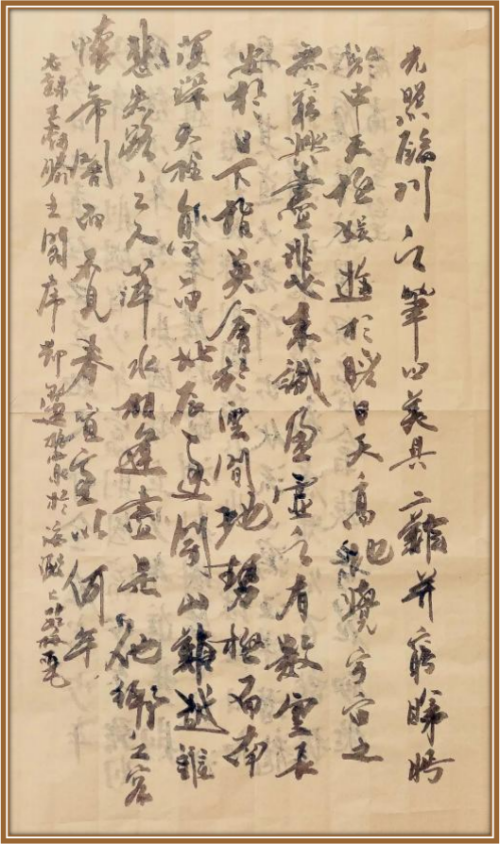 光照臨川之筆四美具二難并窮睇眄
於中天極娛遊於暇日天高地迥覺宇宙之
無窮興盡悲來識盈虛之有數望長
安於日下指吳會於雲間地勢極而南
溟深天柱高而北辰遠關山難越誰
悲失路之人萍水相逢盡是他鄉之客
懷帝閽而不見奉宣室以何年
右錄王勃滕王閣序 於海